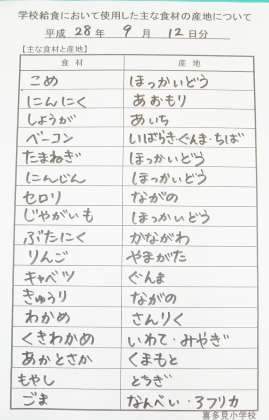 学校給食において使用した主な食材の産地について
平成 28 年 9 月 12 日分
【主な食材と産地】
食材 産地
こめ ほっかいどう
にんにく あおもり
しょうが あいち
ベーコン いばらき・ぐんま・ちば
たまねぎ ほっかいどう
にんじん ほっかいどう
セロリ ながの
じゃがいも ほっかいどう
ぶたにく かながわ
りんご やまがた
キャベツ ぐんま
きゅうり ながの
わかめ さんりく
くきわかめ いわて・みやぎ
あかとさか くまもと
もやし とちぎ
ごま なんべい・アフリカ
喜多見小学校